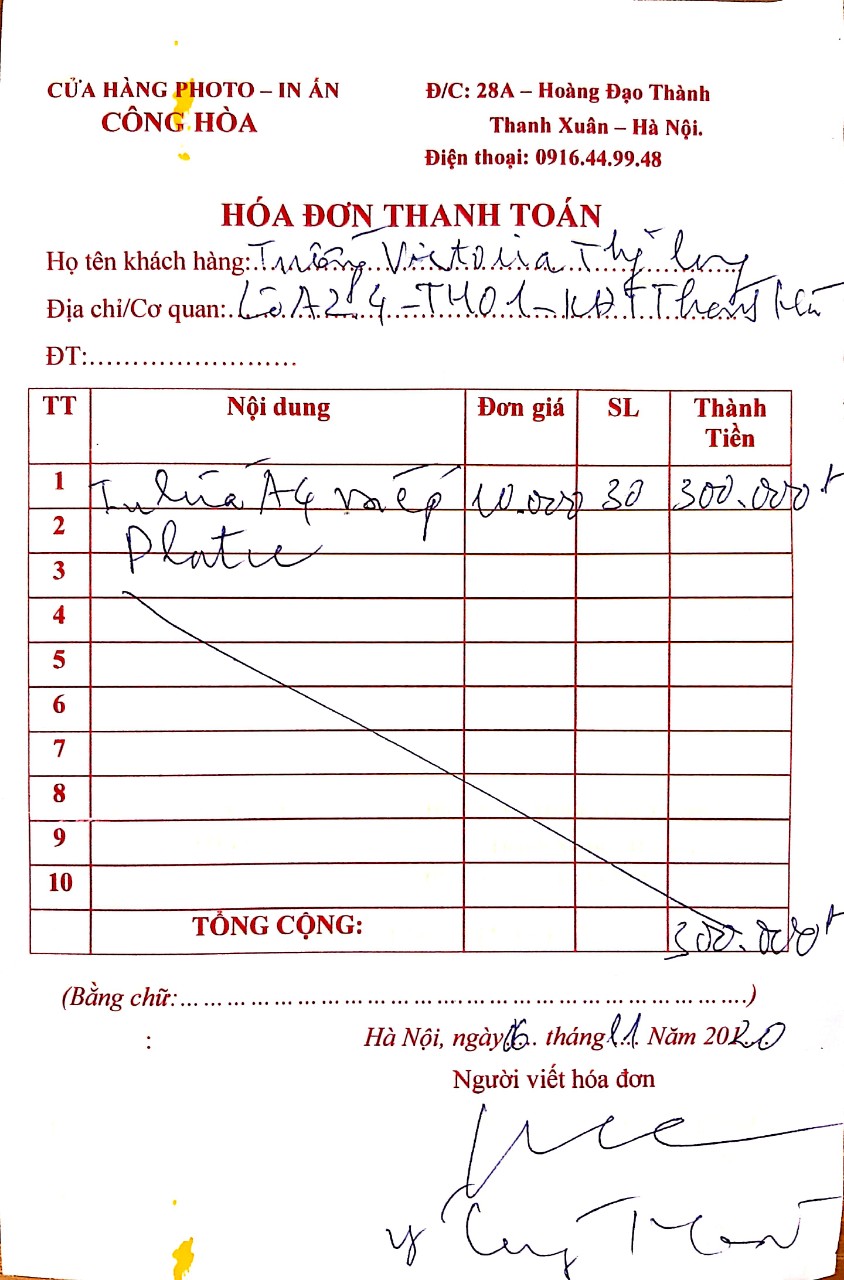 CỬA HÀNG PHOTO – IN ẤN
CÔNG HÒA
Đ/C: 28A – Hoàng Đạo Thành
Thanh Xuân – Hà Nội.
Điện thoại: 0916.44.99.48
HÓA ĐƠN THANH TOÁN
Họ tên khách hàng: Trường Victoria Thăng long
Địa chỉ/Cơ quan: Lô A2.4 - TH01 - KĐT
ĐT:
TT Nội dung Đơn giá SL Thành Tiền
1 In A4 và ép 10.000 30 300.000đ
2 Platic
3
4
5
6
7
8
9
10
TỔNG CỘNG: 300.000đ
(Bằng chữ: )
:
Hà Nội, ngày 6 tháng 11 Năm 2020
Người viết hóa đơn